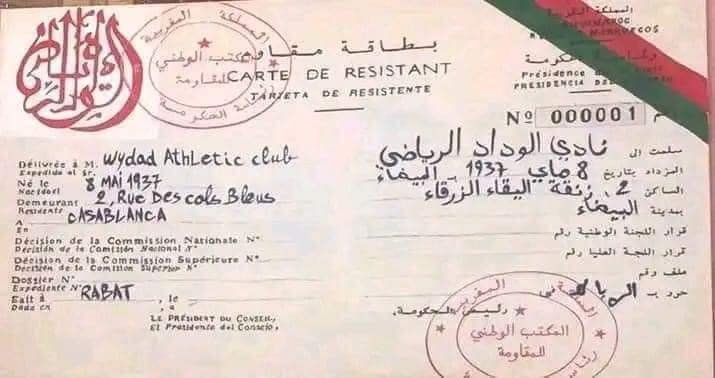 المملكة المغربية
المكتب الوطني
للمقاومة
رئاسة الحكومة
بطاقة مقاوم
CARTE DE RESISTANT
TARJETA DE RESISTENTE
المملكة المغربية
رئاسة الحكومة
Présidence
PRESIDENCIA
Nº 000001
Délivrée à M. Wydad Athletic club
Expedida al Sr.
Né le 8 MAI 1937
Nacido el
Demeurant 2, Rue Des cols Bleus
Residente
A CASABLANCA
En
Décision de la Commission Nationale Nº
Decisión de la Comisión Nacional Nº
Décision de la Commission Supérieure Nº
Decisión de la Comisión Superior Nº
Dossier Nº
Expediente Nº
Fait à RABAT, le
Dado en , a
LE PRÉSIDENT DU CONSEIL,
El Presidente del Consejo,
سلمت الى نادي الوداد الرياضي
المزداد بتاريخ 8 ماي 1937 بـ البيضاء
الساكن 2، زنقة الياقات الزرقاء
بمدينة البيضاء
قرار اللجنة الوطنية رقم
قرار اللجنة العليا رقم
ملف رقم
حرر بـ الرباط في
رئيس الحكومة،
المملكة المغربية
المكتب الوطني
للمقاومة